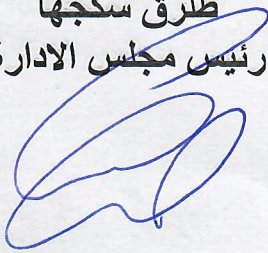 طارق سكجها
رئيس مجلس الادارة